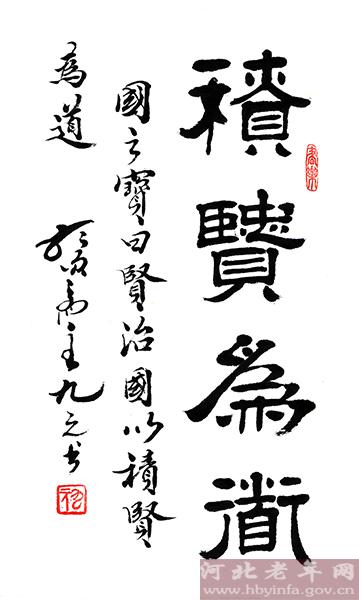 積賢為道
國之寶曰賢治國以積賢
為道
齋主九之书
河北老年网
www.hbyinfa.gov.cn